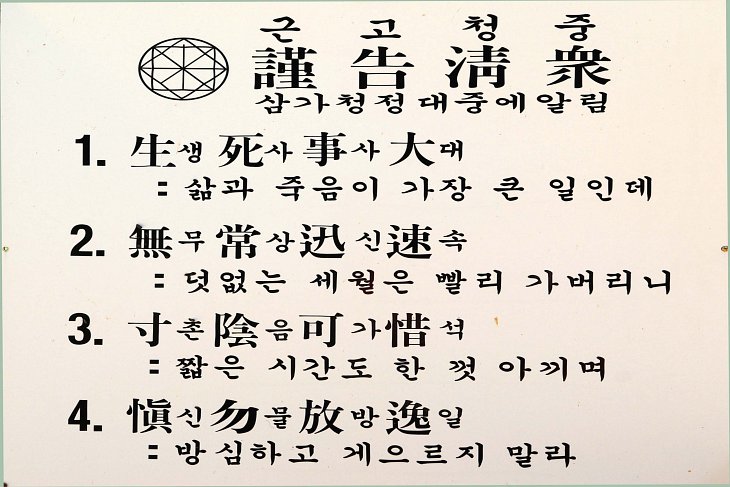 근 고 청 중
謹 告 淸 衆
삼가청정대중에알림
1. 生생 死사 事사 大대
: 삶과 죽음이 가장 큰 일인데
2. 無무 常상 迅신 速속
: 덧없는 세월은 빨리 가버리니
3. 寸촌 陰음 可가 惜석
: 짧은 시간도 한 껏 아끼며
4. 愼신 勿물 放방 逸일
: 방심하고 게으르지 말라